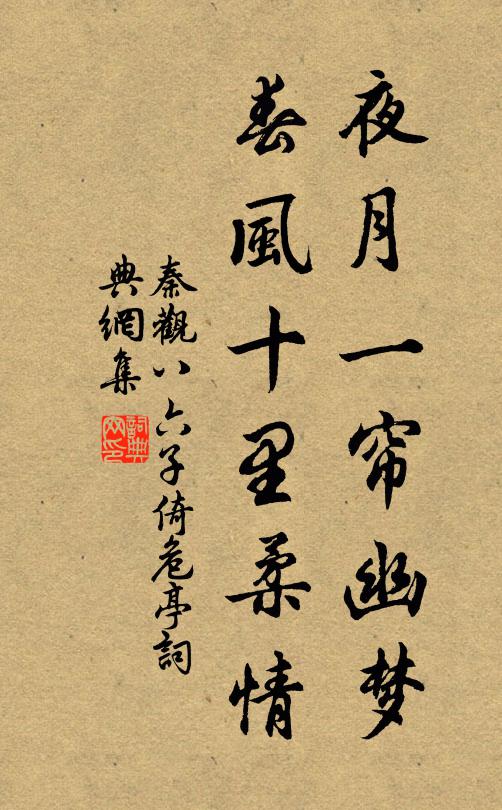 夜月一帘幽梦
春風十里柔情
秦觀八六子倚危亭詞
典網集
詞典
網印